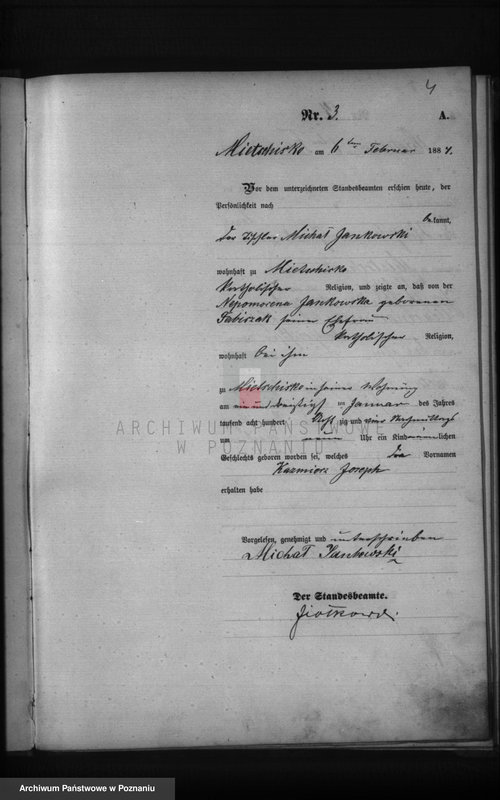 4
Nr. 3.
A.
Mietschisko am 6ten Februar 1884.
Vor dem unterzeichneten Standesbeamten erschien heute, der
Persönlichkeit nach
bekannt,
der Tischler Michał Jankowski
wohnhaft zu Mietschisko
katholischer Religion, und zeigte an, daß von der
Nepomocena Jankowska geborenen
seiner Ehefrau
katholischer Religion,
wohnhaft bei ihm
zu Mietschisko in seiner Wohnung
am ein und dreißigst en Januar des Jahres
tausend acht hundert acht zig und vier Nachmittags
um neun Uhr ein Kind männlichen
Geschlechts geboren worden sei, welches die Vornamen
Kazmierz Joseph
erhalten habe
Vorgelesen, genehmigt und unterschrieben
Michał Jankowski
Der Standesbeamte.
ARCHIWUM PAŃSTWOWE
W POZNANIU
Archiwum Państwowe w Poznaniu